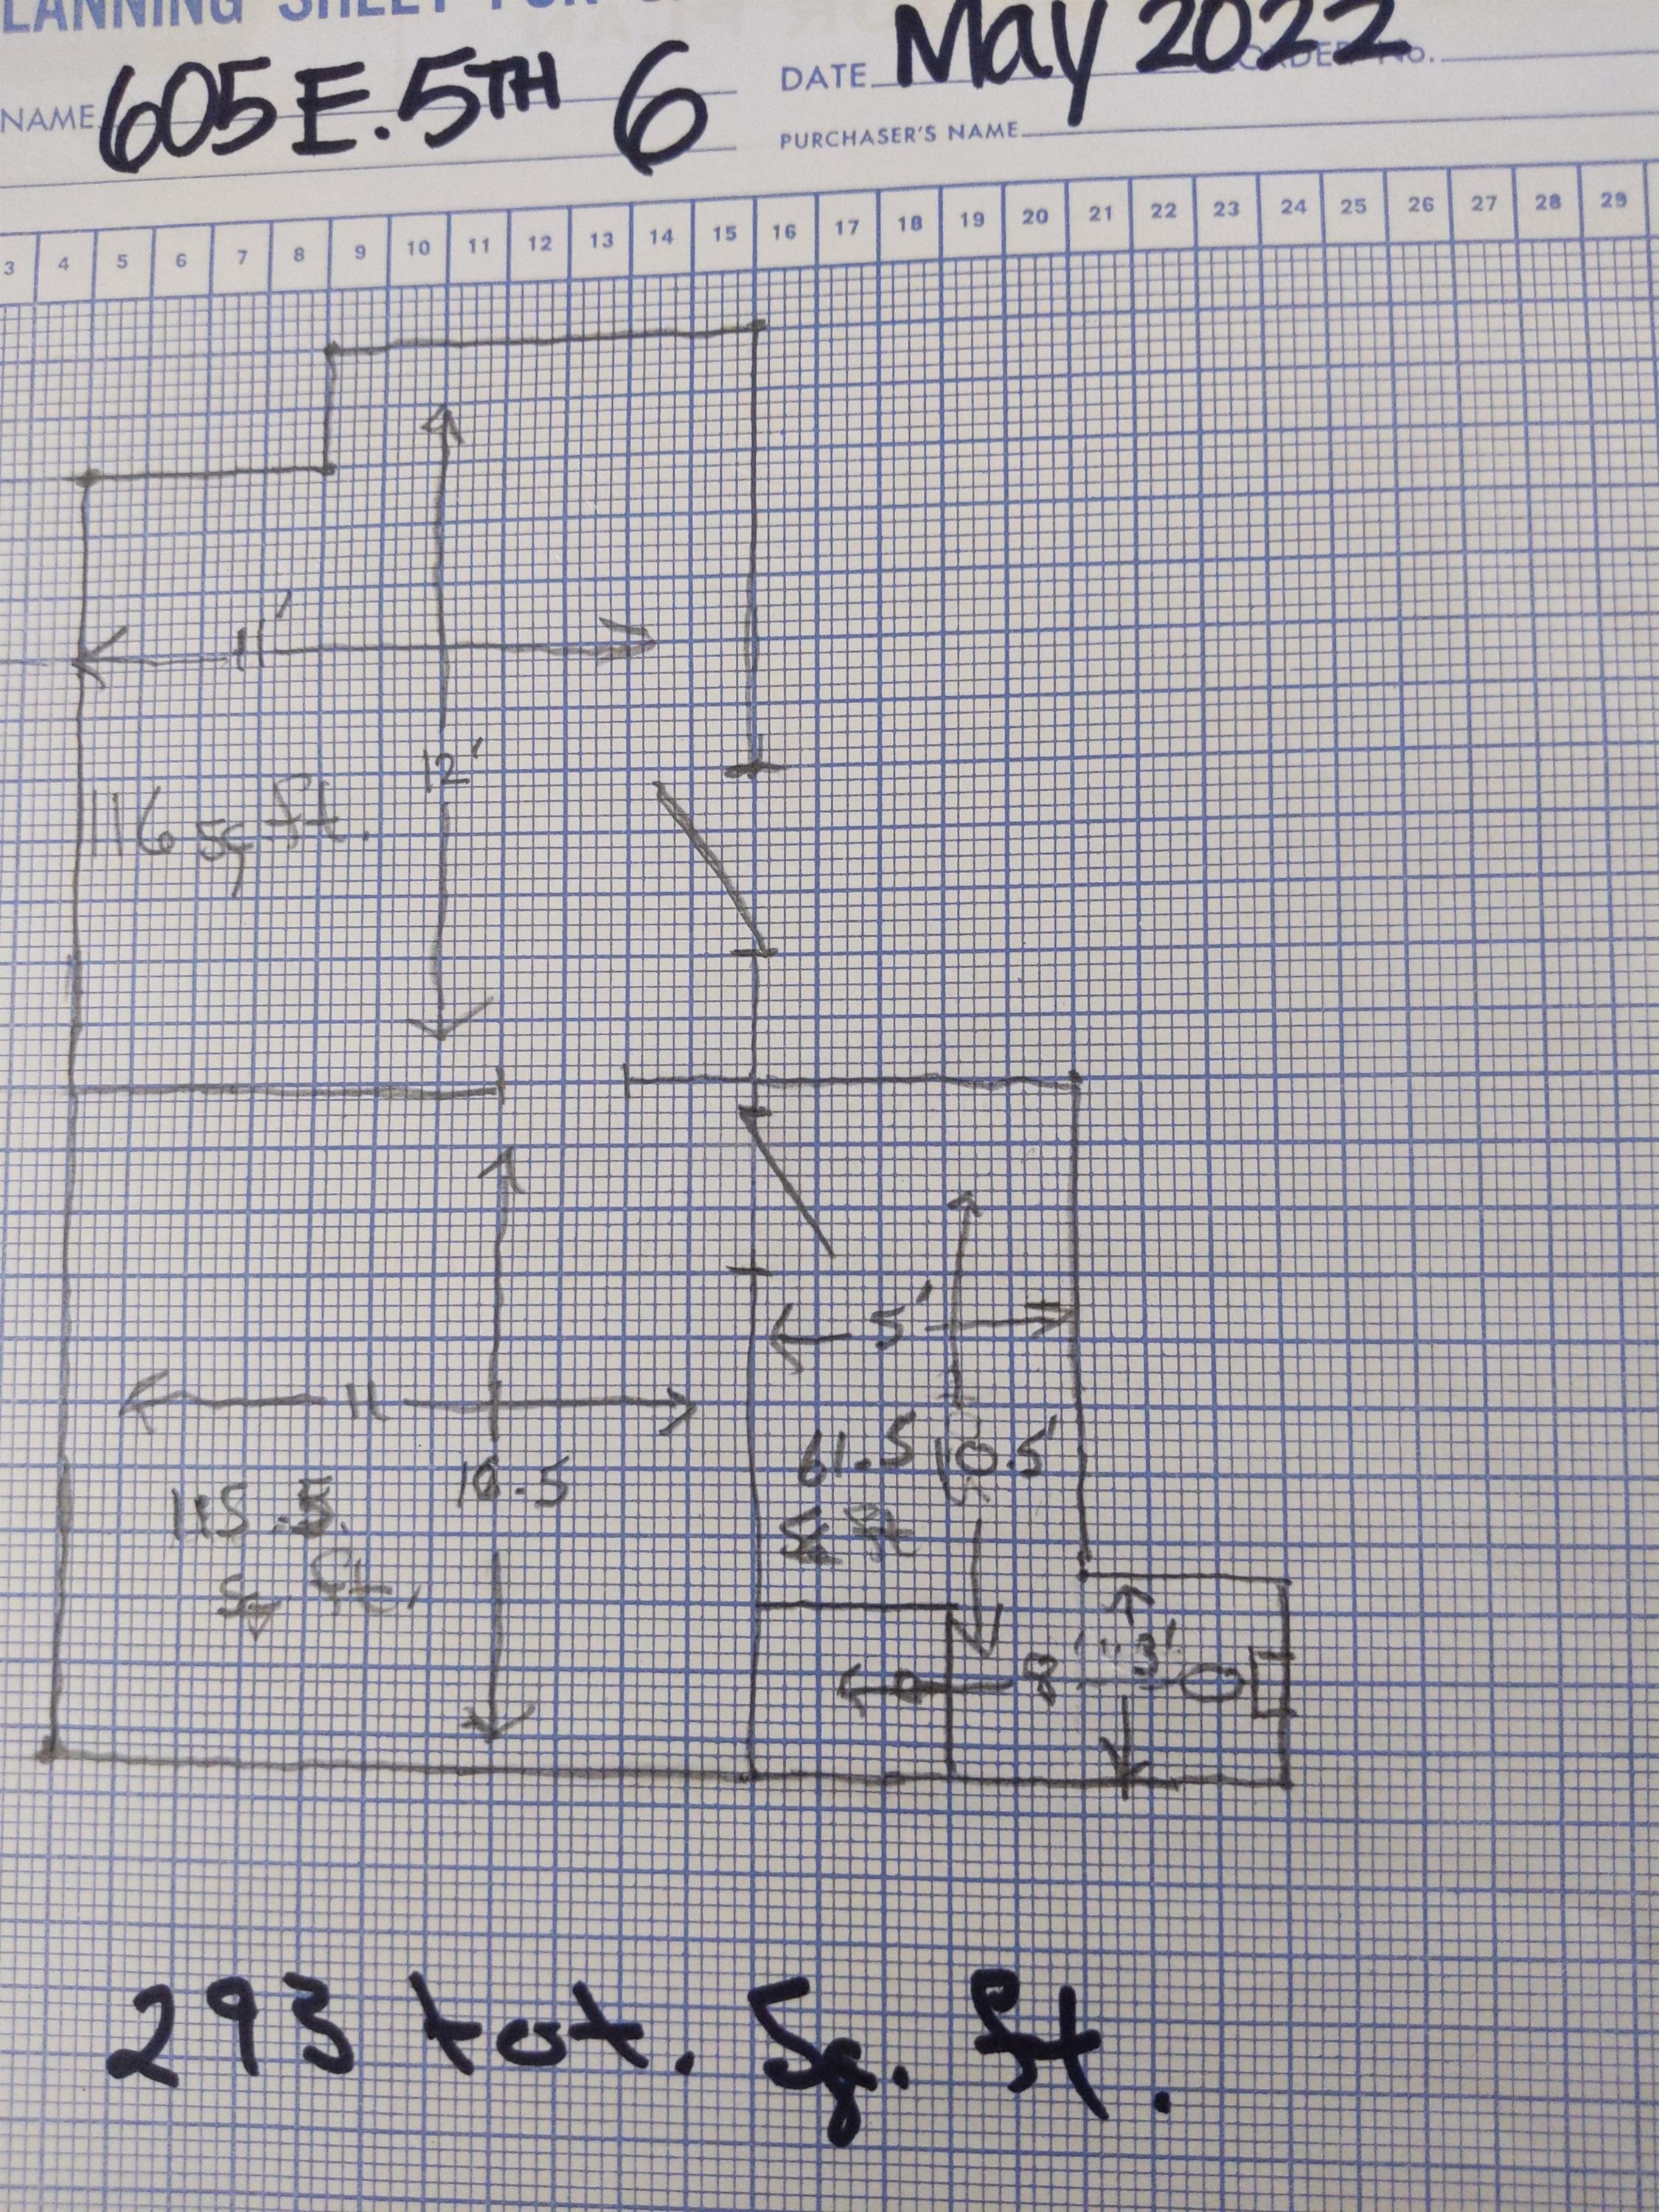 605 E. 5TH 6
May 2022
NAME
DATE
PURCHASER'S NAME
3 4 5 6 7 8 9 10 11 12 13 14 15 16 17 18 19 20 21 22 23 24 25 26 27 28 29
11'
12'
116 sq ft.
5'
11
61.5 10.5'
sq ft
10.5
115.5
sq ft.
8' 3'
293 tot. Sq. ft.